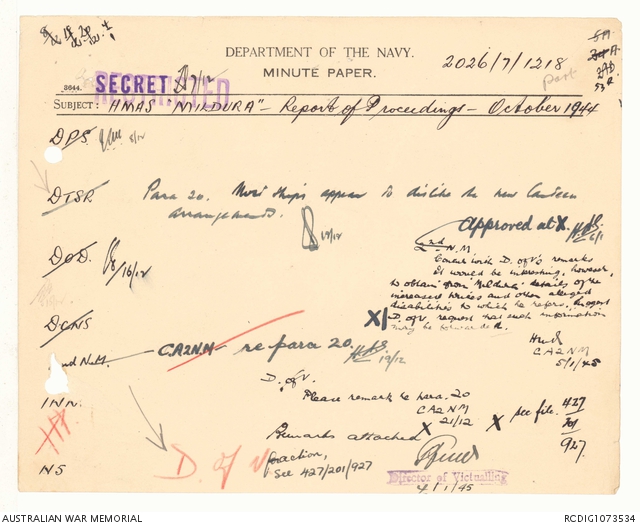 DEPARTMENT OF THE NAVY.
MINUTE PAPER.
2026/7/1218
3644.
SECRET
7/12
SUBJECT: HMAS "MILDURA" - Report of Proceedings - October 1944
DPS 8/12
DTSR
Para 20. Most ships appear to dislike the new Canteen
arrangements.
12/12
Approved at X. HAS
6/1
DOD. 16/12
2nd N.M.
Concur with D. of V's remarks
It would be interesting, however,
to obtain from "Mildura" details of the
increased prices and other alleged
disabilities to which he refers. Suggest
D. of V. request that such information
may be forwarded.
X/
CA2NM
5/1/45
DCNS
2nd N.M. CA2NM re para 20. HAS
19/12
D. of V.
Please remark to para. 20
CA2NM
21/12
INN.
X
X see file. 427
201
927
Remarks attached
foraction,
See 427/201/927
D. of V
NS
Director of Victualling
4/1/45
AUSTRALIAN WAR MEMORIAL
RCDIG1073534